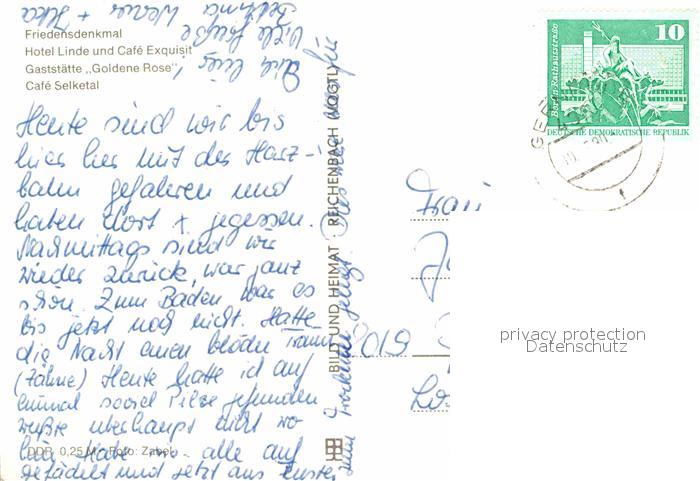 Friedensdenkmal
Hotel Linde und Café Exquisit
Gaststätte „Goldene Rose“
Café Selketal
Heute sind wir bis
hier her mit der Harz-
bahn gefahren und
haben dort + gegessen.
Nachmittags sind wir
wieder zurück, war ganz
schön. Zum Baden war es
bis jetzt noch nicht. Hatte
die Nacht einen blöden Traum
(Zähne) Heute hatte ich auf
einmal soviel Pilze gefunden
wußte überhaupt nicht wo
hin. Habe alle auf
gefädelt und jetzt aus Fenster
zum Trocknen gelegt.
Viele Grüße
Werner +
DDR 0,25 M Foto: Zabel
BILD UND HEIMAT REICHENBACH (VOGTL)
10
Berlin-Rathausstraße
DEUTSCHE DEMOKRATISCHE REPUBLIK
Frau
8019
privacy protection
Datenschutz